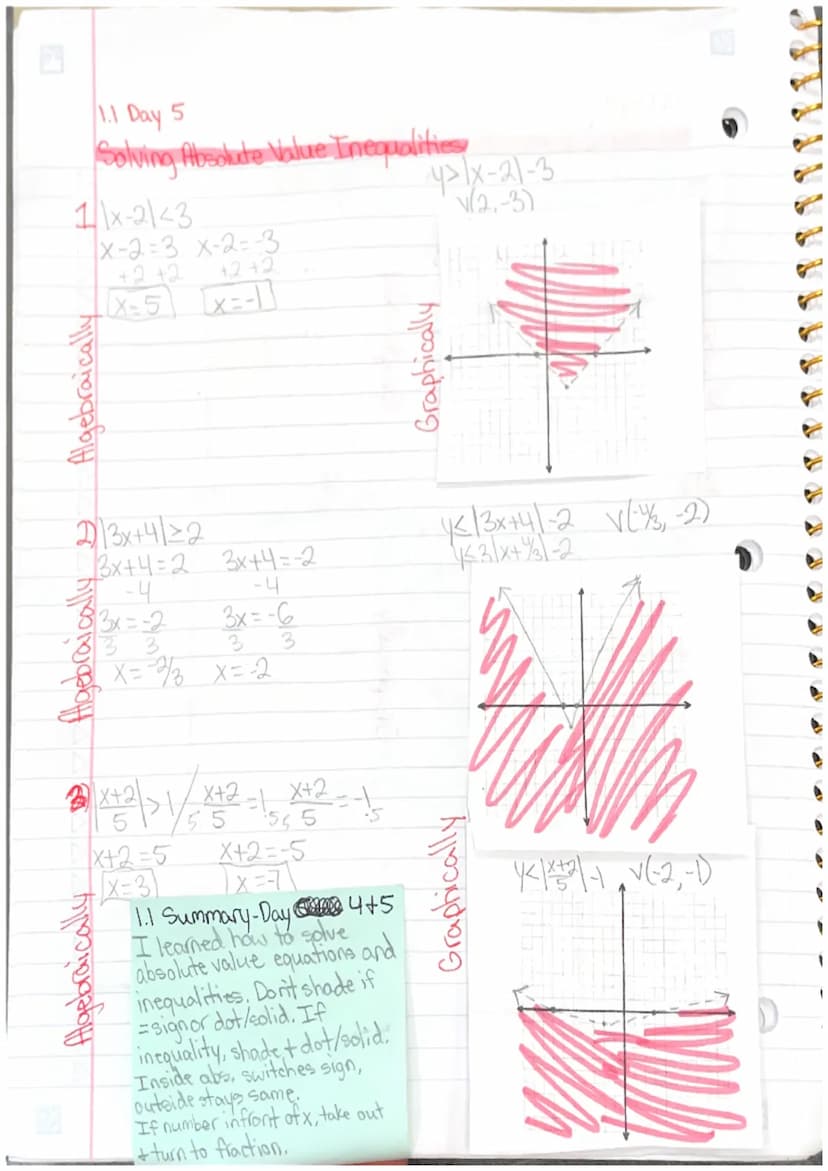 1.1 Day 5
Solving Absolute Value Inequalities
1 |x-2|<3
x-2=3 x-2=-3
+2 +2 +2 +2
x=5 x=-1
Algebraically
y>|x-2|-3
v(2,-3)
Graphically
2) |3x+4|≥2
3x+4=2 3x+4=-2
-4 -4
3x=-2 3x=-6
3 3 3 3
x=-2/3 x=-2
Algebraically
y≤|3x+4|-2 v(-4/3, -2)
y≤3|x+4/3|-2
|x+2/5|>1 / 5 x+2/5=1.5 5 x+2/5=-1.5
x+2=5 x+2=-5
x=3 x=-7
Algebraically
Graphically
y<|x+2/5|-1 v(-2,-1)
1.1 Summary-Day 4+5
I learned how to solve
absolute value equations and
inequalities. Don't shade if
=sign or dot/solid. If
inequality, shade + dot/solid.
Inside abs. switches sign,
outside stays same.
If number infront of x, take out
+ turn to fraction.